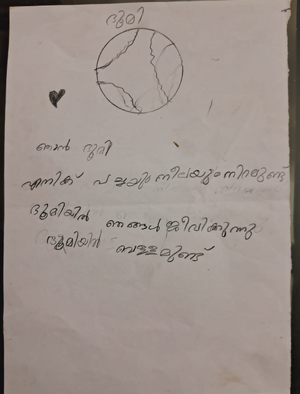 ഭൂമി
ഞാൻ ഭൂമി
എനിക്ക് പച്ചയും നീലയും നിറമുണ്ട്
ഭൂമിയിൽ ഞങ്ങൾ ജീവിക്കുന്നു
ഭൂമിയിൽ വെള്ളമുണ്ട്